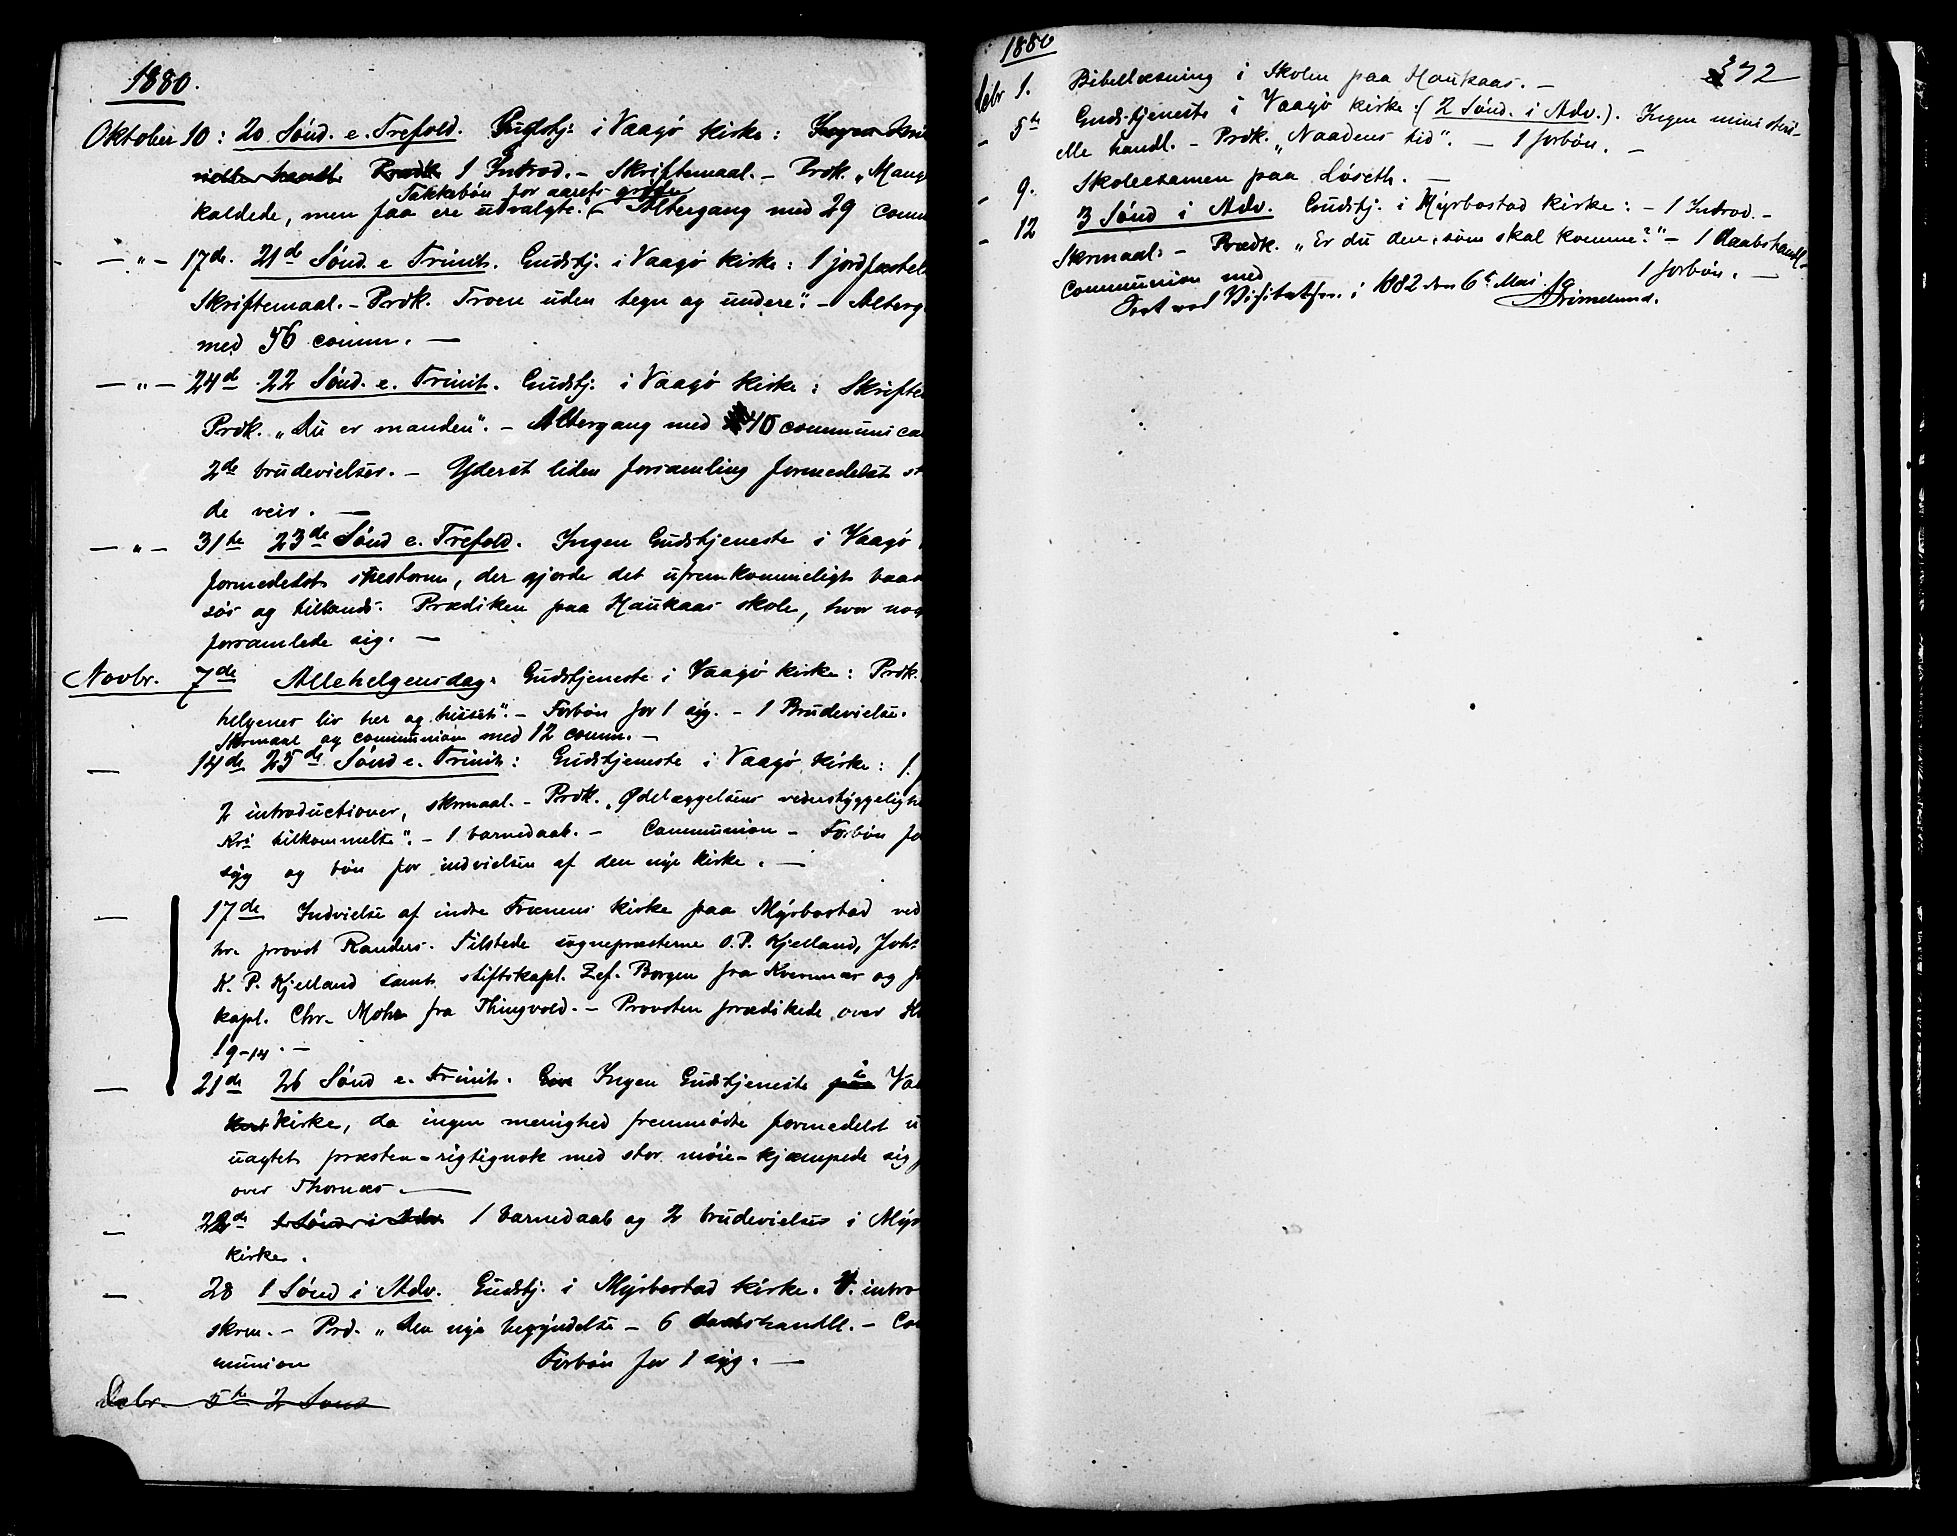 1880.
Oktober 10: 20 Sönd. e. Trefold. Gudstj. i Vaagö kirke: Ingen
1 Introd. - Skriftemaal. - Prdk. "Mang
Takkebön for aarets gröde
kaldede, men faa ere udvalgte". - Altergang med 29 comm
- " - 17de. 21de Sönd. e Trinit. Gudstj. i Vaagö kirke: 1 jordfæstel
Skriftemaal. - Prdk. Troen uden tegn og undere". - Alterg
med 56 comm. -
- " - 24de 22 Sönd. e. Trinit. Gudstj. i Vaagö kirke: Skrifte
Prdk. "Du er manden". - Altergang med 40 communica
2de brudevielser. - Yderst liden forsamling formedelst
de veir. -
- " - 31te 23de Sönd e. Trefold. Ingen Gudstjeneste i Vaagö
formedelst storm, der gjorde det ufremkommeligt baad
sös og tillands. Prædiken paa Haukaas skole, hvor nog
forsamlede sig. -
Novbr. 7de Allehelgensdag. Gudstjeneste i Vaagö kirke: Prdk.
helgenes liv her og hisset". - Forbön for 1 syg. - 1 Brudevielse.
Skrmaal og communion med 12 comm. -
- 14de 25de Sönd e. Trinit: Gudstjeneste i Vaagö kirke: 1.
2 introductioner, skrmaal. - Prdk. "Ödelæggelsens vederstyggelighe
Kri tilkommelse". - 1 barnedaab. - Communion - Forbön fo
syg og bön for indvielsen af den nye kirke. -
- 17de Indvielse af indre Frænens kirke paa Myrbostad ved
hr. provst Randers. Tilstede sognepræsterne O. P. Kjelland, Joh.
K. P. Kjelland samt stiftskapl. Zef. Borgen fra Kvernnæs og
kapl. Chr. Mohr fra Thingvold. - Provsten prædikede over
19-14. -
- 21de 26 Sönd e. Trinit. Ingen Gudstjeneste paa i Va
kirke, da ingen menighed fremmödte formedelst u
uagtet præsten - rigtignok med stor möie - kjæmpede sig
over Thornæs. -
- 22de 1 Sönd i Adv. 1 barnedaab og 2 brudevielser i Myr
kirke.
- 28 1 Sönd i Adv. Gudstj. i Myrbostad kirke. intro
skrm. - Prd. "Den nye begyndelse - 6 daabshandll. - Com
munion Forbön for 1 syg. -
Debr. 5te 2 Sönd
1880
372
Debr 1. Bibellæsning i Skolen paa Haukaas. -
- 5te Gudstjeneste i Vaagö kirke. (2 Sönd. i Adv.). Ingen ministeri-
elle handl. - Prdk. "Naadens tid". - 1 forbön. -
- 9. Skoleexamen paa Löseth. -
- 12 3 Sönd i Adv. Gudstj. i Myrbostad kirke: - 1 Introd. -
Skrmaal: - Prædk. "Er du den, som skal komme?" - 1 daabshandl. -
Communion med 1 forbön. -
Seet ved Visitatsen i 1882 den 6te Mai. Grimelund.